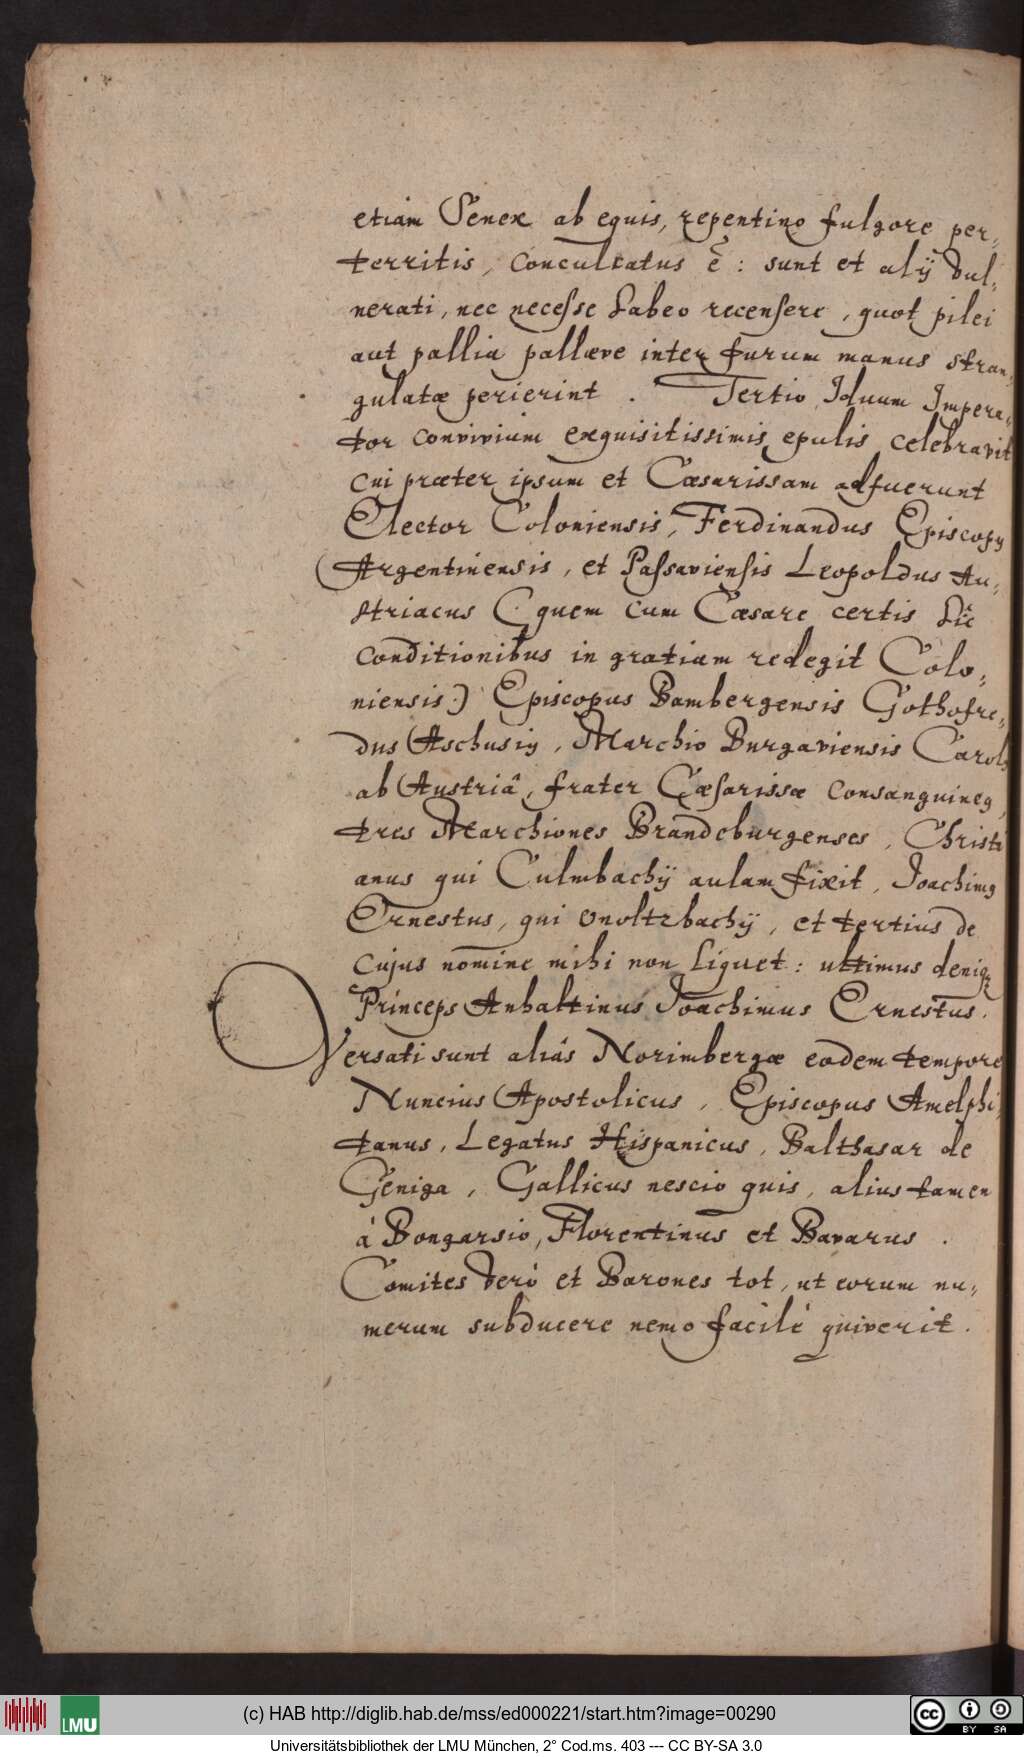 etiam Senex ab equis, repentino fulgore per„
territis, Concultatus ẽ: sunt et alÿ vul„
nerati, nec necesse habeo recensere, quot pilei
aut pallia pallæve inter furum manus stran„
gulatæ perierint. Tertio Iduum Impera„
tor convivium exquisitissimis epulis celebravit
cui præter ipsum et Cæsarissam adfuerunt
Elector Coloniensis, Ferdinandus Episcopꝰ
Argentinensis, et Passaviensis Leopoldus Au„
striacus (quem cum Cæsare certis hic
conditionibus in gratiam redegit Colo„
niensis.) Episcopus Bambergensis Gothofre„
dus Aschusiꝰ, Marchio Burgaviensis Carolꝰ
ab Austriâ, frater Cæsarissæ consanguineꝰ,
tres Marchiones Brandeburgenses, Christi
anus qui Culmbachÿ aulam fixit, Joachimꝰ
Ernestus, qui Onoltzbachÿ, et tertius de
cujus nomine mihi non liquet: ultimus deniqꝫ
Princeps Anhaltinus Joachimus Ernestus.
Versati sunt aliàs Norimbergæ eodem tempore
Nuncius Apostolicus, Episcopus Amelphi„
tanus, Legatus Hispanicus, Balthasar de
Geniga, Gallicus nescio quis, alius tamen
á Bongarsio, Florentinus et Bavarus.
Comites verò et Barones tot, ut eorum nu„
merum subducere nemo facilè quiverit.
(c) HAB http://diglib.hab.de/mss/ed000221/start.htm?image=00290
Universitätsbibliothek der LMU München, 2° Cod.ms. 403 --- CC BY-SA 3.0
LMU
cc
BY SA